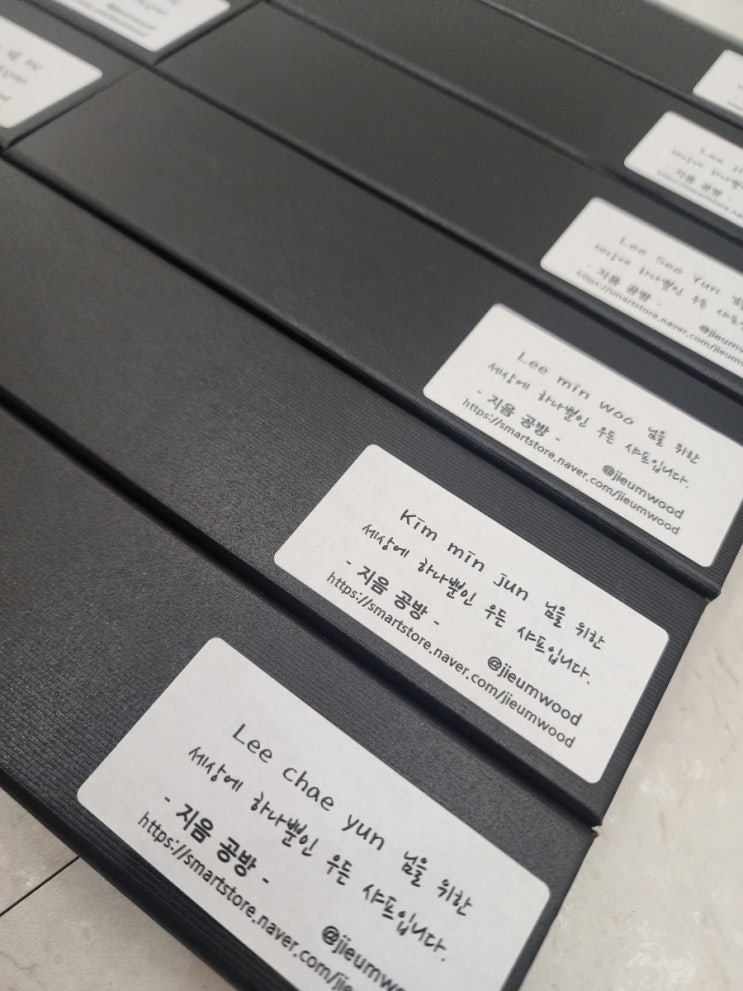 Lee
- 지음 공방 -
Lee Seo Yun
세상에 하나뿐인 우든
- 지음 공방 -
@jieumw
https://smartstore.naver.com/jieumw
Lee min woo 님을 위한
세상에 하나뿐인 우든 샤프입니다.
- 지음 공방 -
@jieumwood
https://smartstore.naver.com/jieumwood
Kim min jun 님을 위한
세상에 하나뿐인 우든 샤프입니다.
- 지음 공방 -
@jieumwood
https://smartstore.naver.com/jieumwood
Lee chae yun 님을 위한
세상에 하나뿐인 우든 샤프입니다.
- 지음 공방 -
@jieumwo
https://smartstore.naver.com/jie